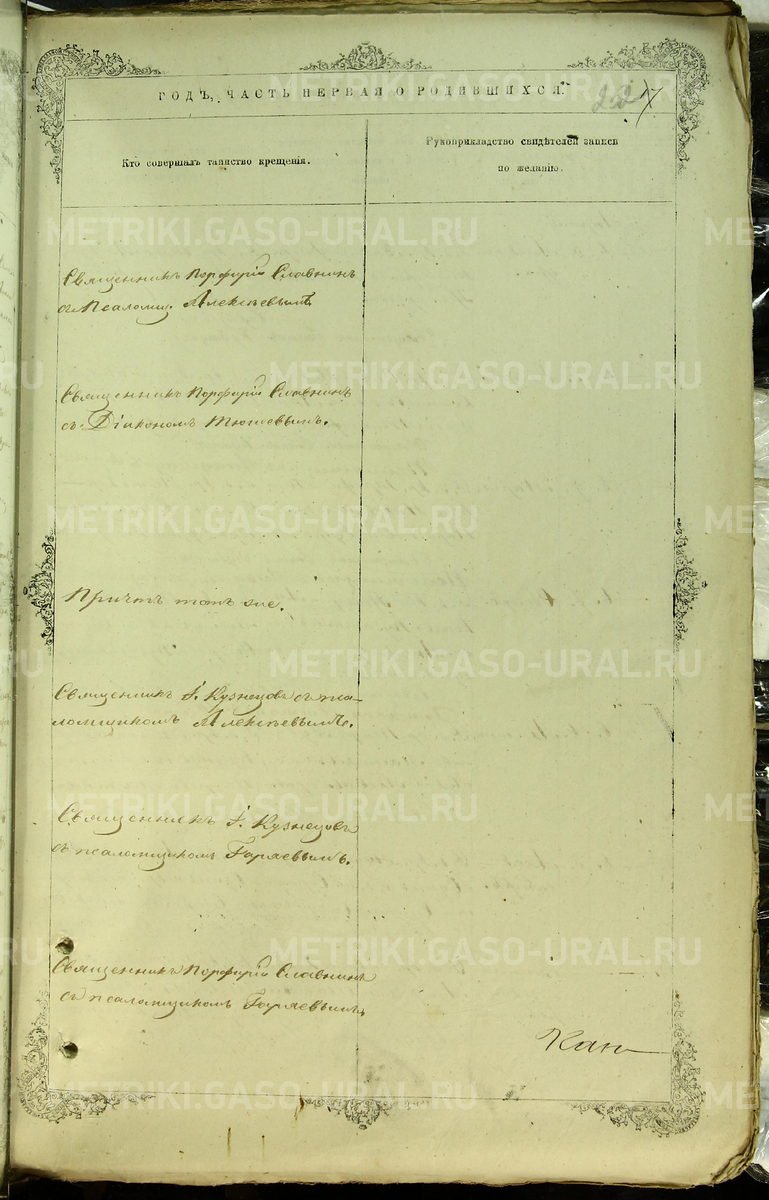 ГОДЪ, ЧАСТЬ ПЕРВАЯ О РОДИВШИХСЯ.
17
Кто совершалъ таинство крещенія.
Рукоприкладство свидѣтелей записи
по желанію.
Священникъ Порфирій Славнинъ
съ Псаломщ. Алексѣевымъ
Священникъ Порфирій Славнинъ
съ Діакономъ
Причтъ тотъ же.
Священникъ І. Кузнецовъ съ пса-
ломщикомъ Алексѣевымъ.
Священникъ І. Кузнецовъ
съ псаломщикомъ Горяевымъ.
Священникъ Порфирій Славнинъ
съ псаломщикомъ Горяевымъ
METRIKI.GASO-URAL.RU